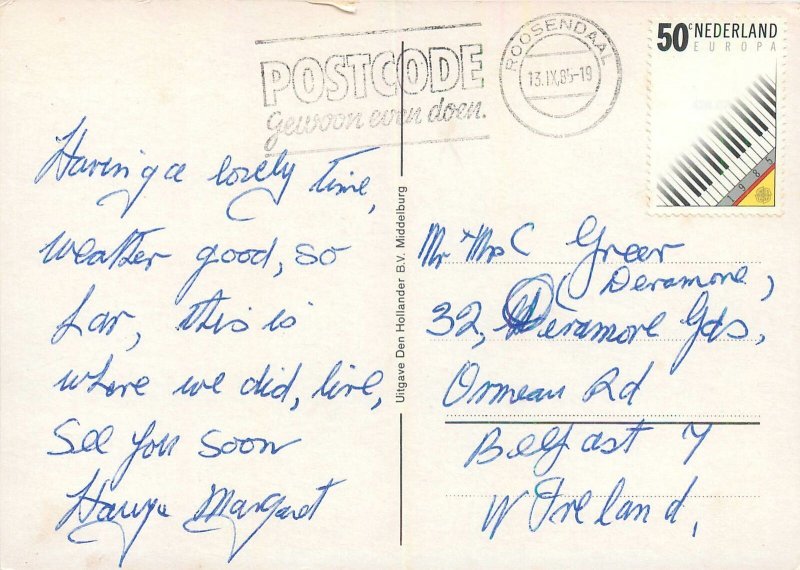 POSTCODE
gewoon even doen.
ROOSENDAAL
13.IX.85-19
50c NEDERLAND
EUROPA
1985
Having a lovely time,
weather good, so
far, this is
where we did, live,
See you soon
Margaret
Uitgave Den Hollander B.V. Middelburg
Mr + Mrs C Greer
(Deramore)
32, Deramore Gds,
Ormeau Rd
Belfast 7
N Ireland,